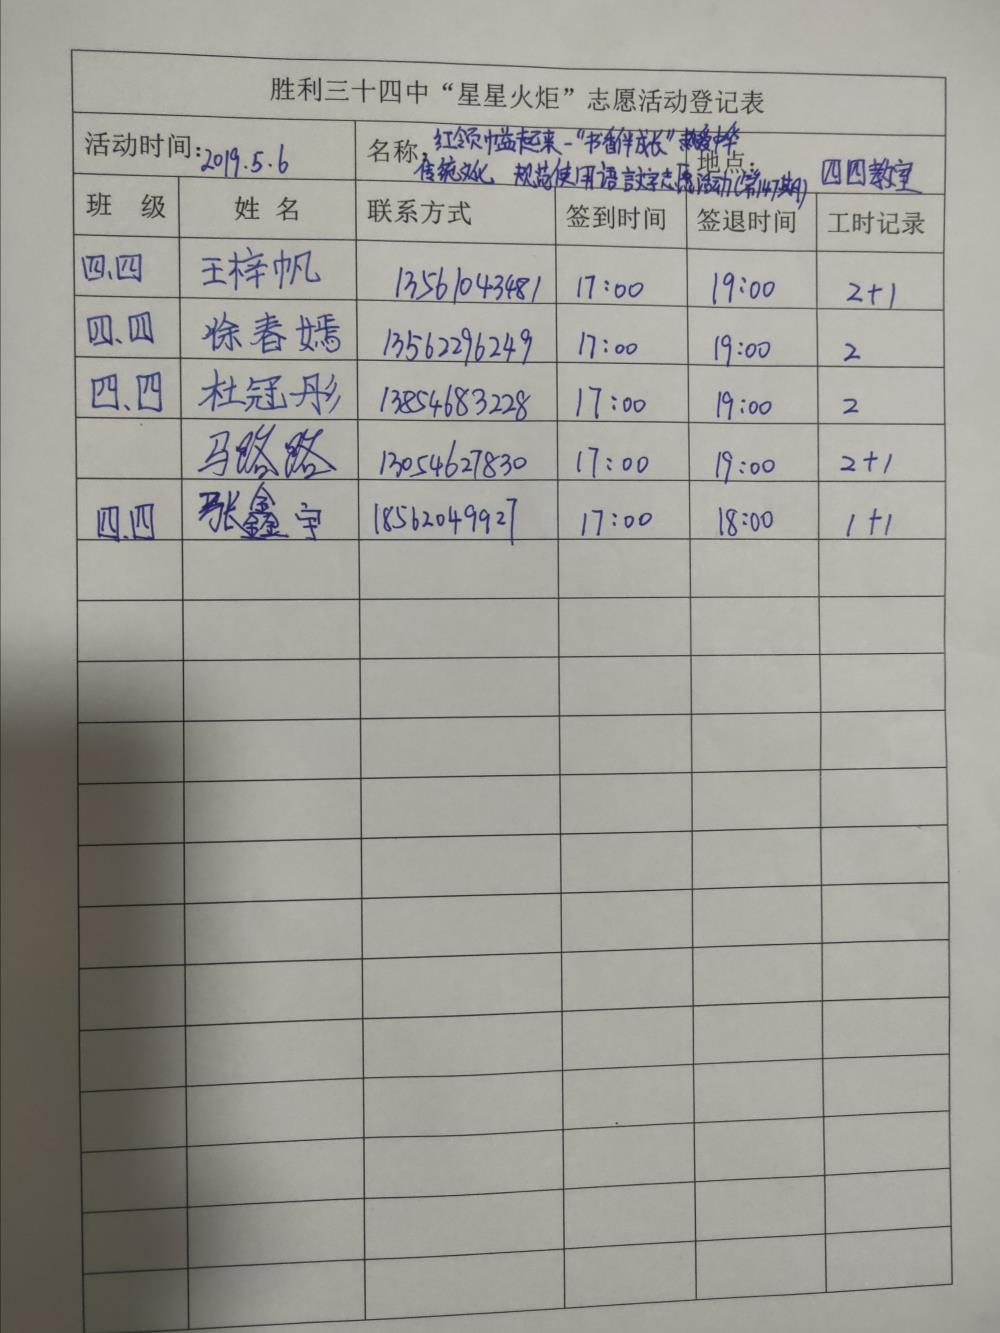 胜利三十四中“星星火炬”志愿活动登记表
活动时间：2019.5.6 名称：红领巾益起来—“书香伴成长”热爱中华
传统文化 规范使用语言文字志愿活动(第147期) 地点： 四四教室
班 级 姓 名 联系方式 签到时间 签退时间 工时记录
四.四 王梓帆 13561043481 17:00 19:00 2+1
四.四 徐春嫣 13562296249 17:00 19:00 2
四.四 杜冠彤 13854683228 17:00 19:00 2
马路路 13054627830 17:00 19:00 2+1
四.四 张鑫宇 18562049927 17:00 18:00 1+1